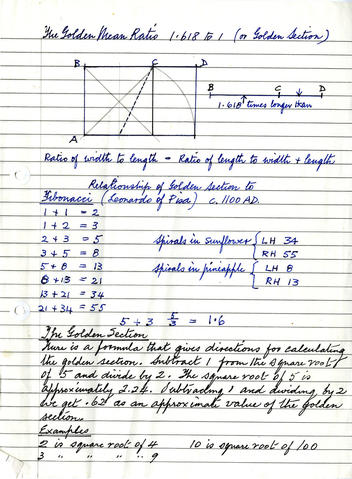 The Golden Mean Ratio 1.618 to 1 (or Golden Section)
B C D
B C D
1.618 times longer than
A
Ratio of width to length = Ratio of length to width + length
Relationship of Golden Section to
Fibonacci (Leonardo of Pisa) c. 1100 AD.
1 + 1 = 2
1 + 2 = 3
2 + 3 = 5 spirals in sunflower { LH 34
3 + 5 = 8 RH 55
5 + 8 = 13 spirals in pineapple { LH 8
8 + 13 = 21 RH 13
13 + 21 = 34
21 + 34 = 55
5 + 3 5/3 = 1.6
The Golden Section
There is a formula that gives directions for calculating
the golden section. Subtract 1 from the square root
of 5 and divide by 2. The square root of 5 is
approximately 2.24. Subtracting 1 and dividing by 2
we get .62 as an approximate value of the golden
section.
Examples
2 is square root of 4 10 is square root of 100
3 " " " " 9